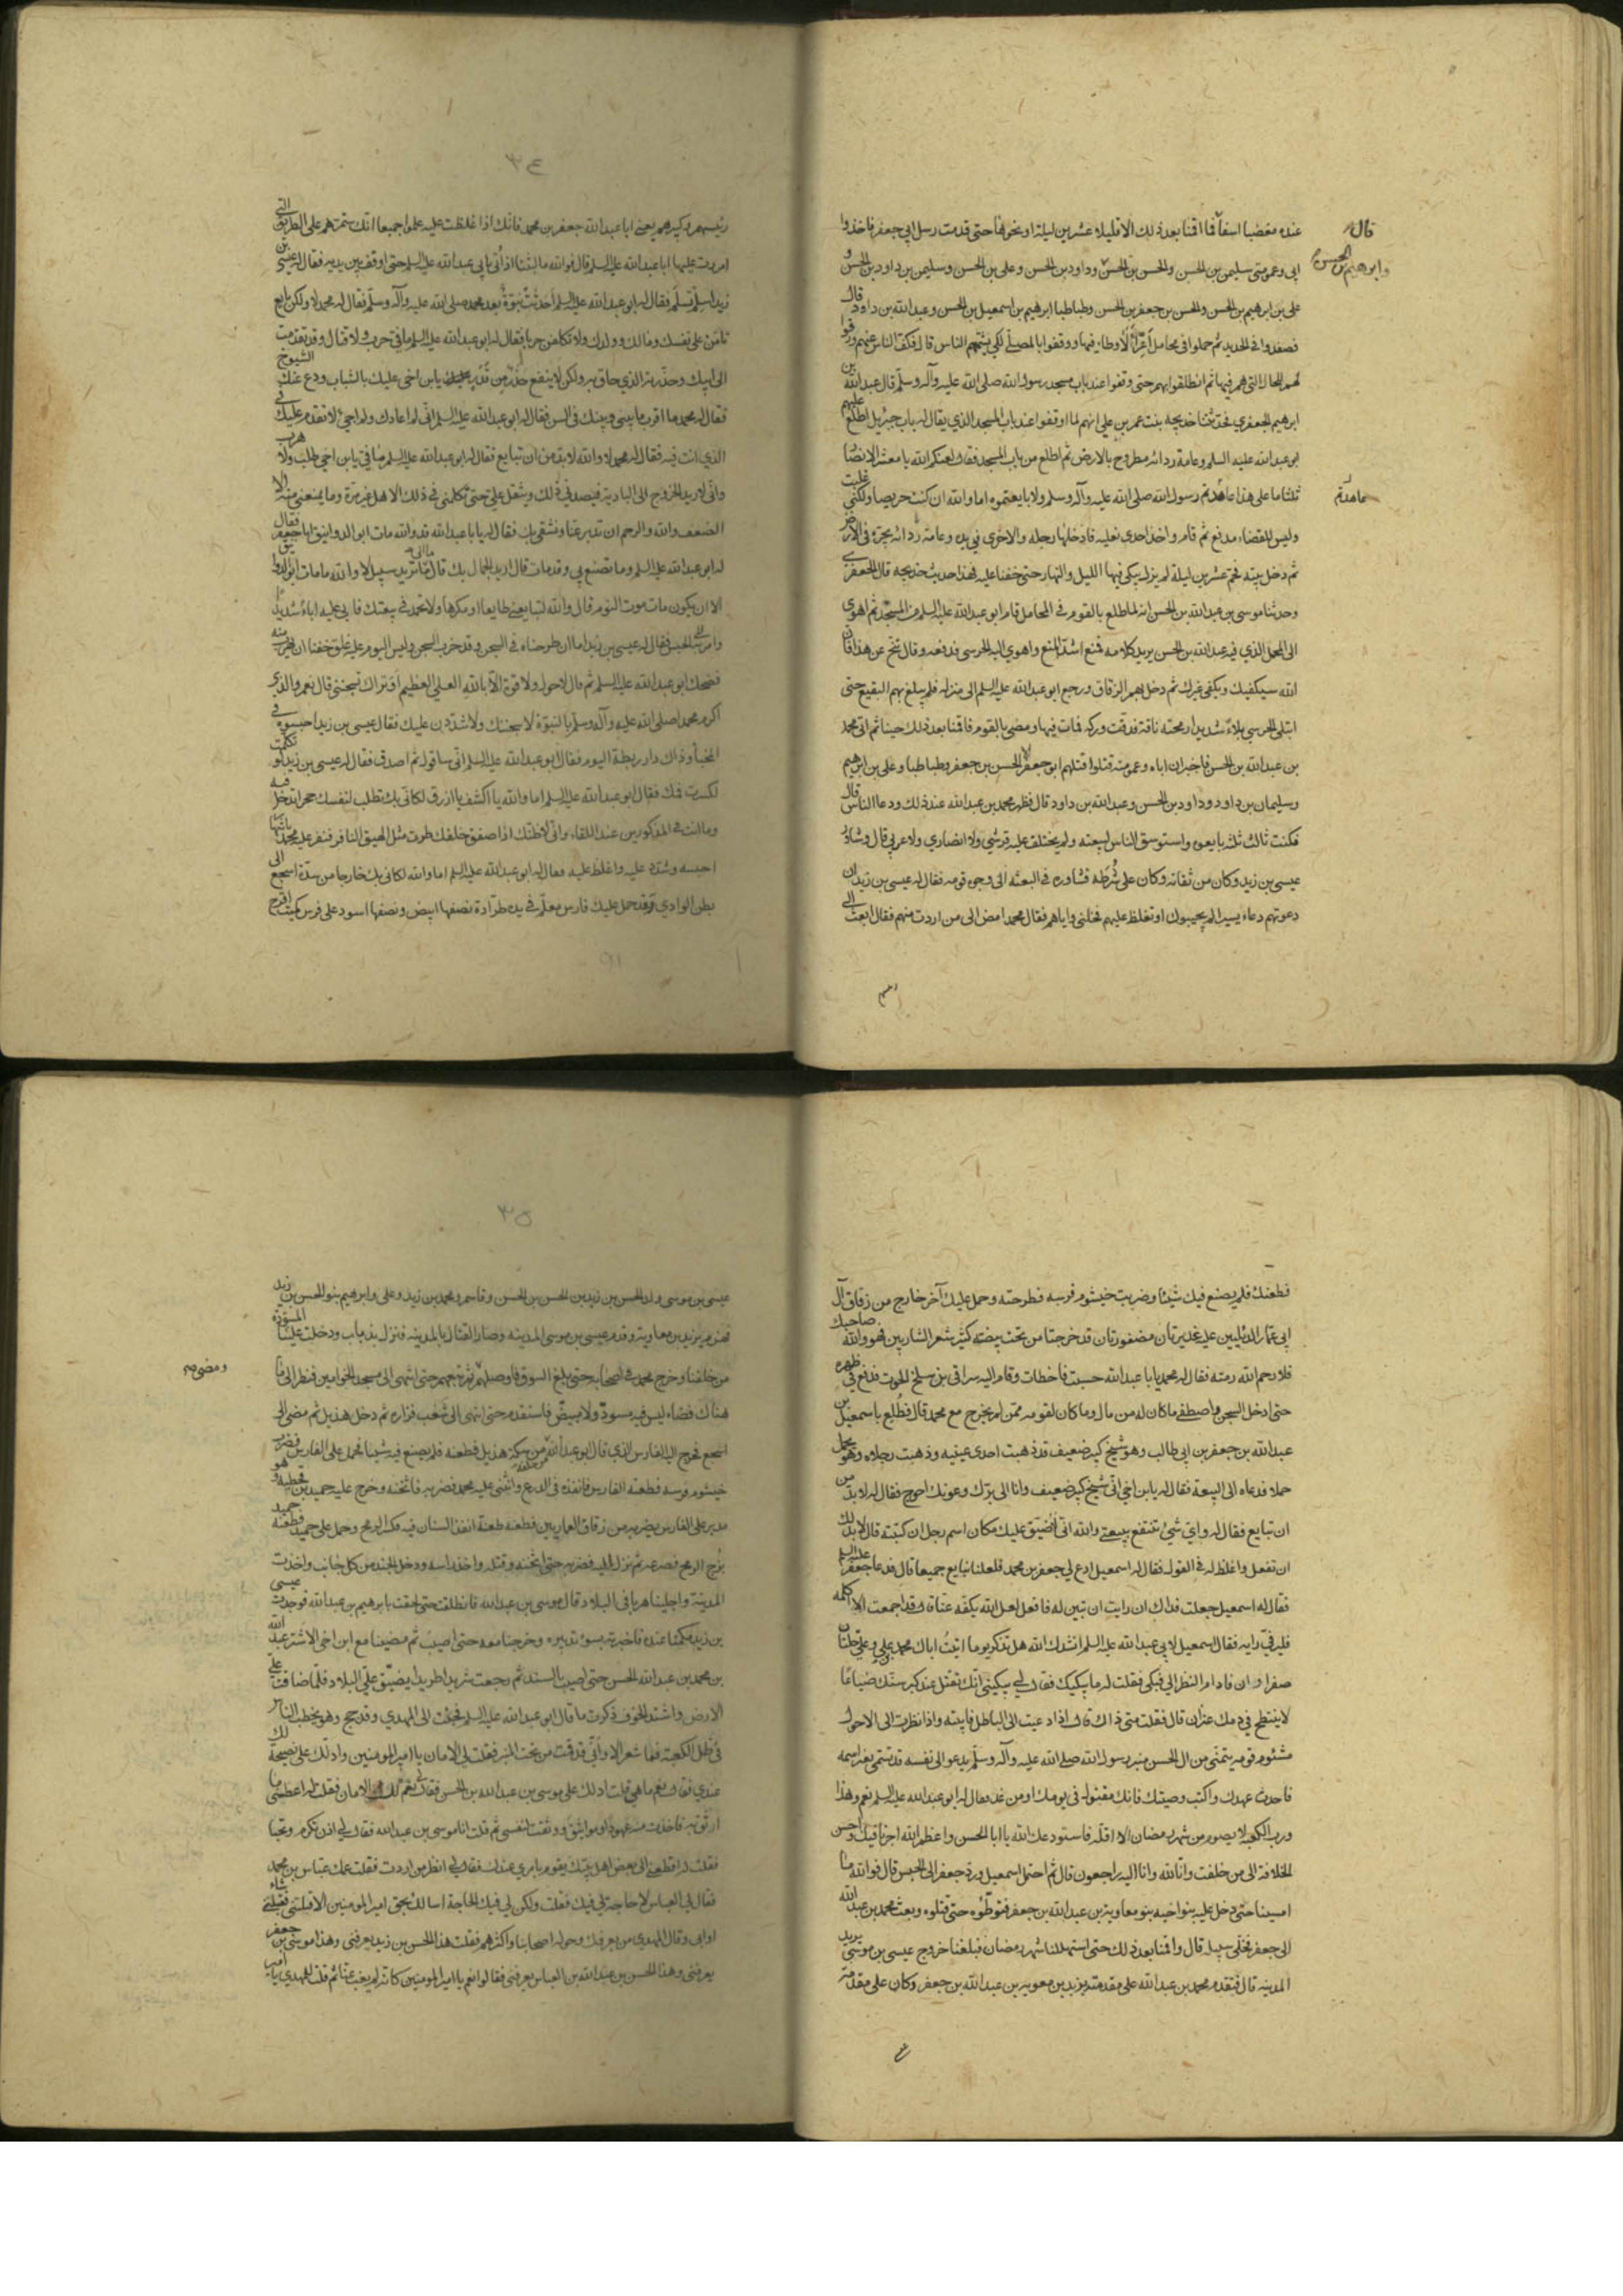 عنده مغضبا اسفا فما اقمنا بعد ذلك الا قليلا عشرين ليلة او نحوها حتى قدمت رسل ابي جعفر فاخذوا
قال
ابي وعمومتى سليمن بن الحسن والحسن بن الحسن وداود بن الحسن وعلى بن الحسن وسليمن بن داود بن الحسن و
وابرهيم بن الحسن
على بن ابرهيم بن الحسن والحسن بن جعفر بن الحسن وطباطبا ابرهيم بن اسمعيل بن الحسن وعبد الله بن داود قال
فصفدوا فى الحديد ثم حملوا فى محامل أعراء لا وطاء فيها ووقفوا بالمصلى لكى يشتمهم الناس قال فكف الناس عنهم ورقوا
لهم للحال التى هم فيها ثم انطلقوا بهم حتى وقفوا عند باب مسجد رسول الله صلى الله عليه وآله وسلم قال عبد الله بن
ابرهيم الجعفرى فحدثتنا خديجه بنت عمر بن على انهم لما اوقفوا عند باب المسجد الذي يقال له باب جبريل اطلع عليهم
ابو عبد الله عليه السلم وعامة ردائه مطروح بالارض ثم اطلع من باب المسجد فقال لعنكم الله يا معشر الانصار
ثلثا ما على هذا عاهدتم رسول الله صلى الله عليه وآله وسلم ولا بايعتموه اما والله ان كنت حريصا ولكنى غلبت
عاهدتم
وليس للقضاء مدفع ثم قام واخذ احدى نعليه فادخلها رجله والاخرى فى يده وعامة ردائه يجره فى الارض
ثم دخل بيته فحم عشرين ليلة لم يزل يبكى فيها الليل والنهار حتى خفنا عليه فهذا حديث خديجه قال الجعفرى
وحدثنا موسى بن عبد الله بن الحسن انه لما طلع بالقوم فى المحامل قام ابو عبد الله عليه السلم من المسجد ثم اهوى
الى المحمل الذي فيه عبد الله بن الحسن يريد كلامه فمنع اشد المنع واهوى اليه الحرسى فدفعه وقال تنح عن هذا فان
الله سيكفيك ويكفى غيرك ثم دخل بهم الزقاق ورجع ابو عبد الله عليه السلم الى منزله فلم يبلغ بهم البقيع حتى
ابتلى الحرسى بلاء شديدا رمحته ناقته فدقت وركه فمات فيها ومضى بالقوم فاقمنا بعد ذلك حينا ثم اتى محمد
بن عبد الله بن الحسن فاخبر ان اباه وعمومته قتلوا قتلهم ابو جعفر الا حسن بن جعفر وطباطبا وعلى بن ابرهيم
وسليمان بن داود وداود بن الحسن وعبد الله بن داود قال فظهر محمد بن عبد الله عند ذلك ودعا الناس قال
فكنت ثالث ثلثه بايعوه واستوسق الناس لبيعته ولم يختلف عليه قرشى ولا انصاري ولا عربى قال وشاور
عيسى بن زيد وكان من ثقاته وكان على شرطه فشاوره فى البعثه الى وجوه قومه فقال له عيسى بن زيد ان
دعوتهم دعاء يسيرا لم يجيبوك او تغلظ عليهم فخلنى واياهم فقال محمد امض الى من اردت منهم فقال ابعث الى
رئيسهم وكبيرهم يعنى ابا عبد الله جعفر بن محمد فانك اذا غلظت عليه علموا جميعا انك ستمرهم على الطريق التى
امررت عليها ابا عبد الله عليه السلم قال فوالله ما لبثنا اذ أتى بابى عبد الله عليه السلم حتى اوقف بين يديه فقال له عيسى بن
زيد اسلم تسلم فقال له ابو عبد الله عليه السلم أحدثت نبوة بعد محمد صلى الله عليه وآله وسلم فقال له محمد لا ولكن بايع
تأمن على نفسك ومالك وولدك ولا تكلفن حربا فقال له ابو عبد الله عليه السلم ما فى حرب ولا قتال وقد تقدمت
الى ابيك وحذرته الذي حاق به ولكن لا ينفع حذر من قدر يا بن اخى عليك بالشباب ودع عنك الشيوخ
فقال له محمد ما اقرب ما بينى وبينك فى السن فقال له ابو عبد الله عليه السلم انى لم اعادك ولم اجئ لاتقدم عليك فى
الذي انت فيه فقال له محمد لا والله لا بد من ان تبايع فقال له ابو عبد الله عليه السلم ما فى يا بن اخى طلب ولا هرب
وانى لاريد الخروج الى البادية فيصدنى ذلك ويثقل على حتى تكلمنى فى ذلك الاهل غير مرة وما يمنعنى منه الا
الضعف والله والرحم ان تدبر عنا ونشقى بك فقال له يا ابا عبد الله قد والله مات ابو الدوانيق ابا جعفر فقال
له ابو عبد الله عليه السلم وما تصنع بى وقد مات قال اريد الجمال بك قال ما الى ما تريد سبيل لا والله ما مات ابو الدوانيق
الا ان يكون مات موت النوم قال والله لتبايعنى طايعا او مكرها ولا تحمد فى بيعتك فابى عليه اباء شديدا
وامر به الى الحبس فقال له عيسى بن زيد اما ان طرحناه فى السجن وقد خرب السجن وليس اليوم عليه غلق خفنا ان يهرب منه
فضحك ابو عبد الله عليه السلم ثم قال لا حول ولا قوة الا بالله العلى العظيم او تراك تسجننى قال نعم والذى
اكرم محمدا صلى الله عليه وآله وسلم بالنبوة لاسجننك ولاشددن عليك فقال عيسى بن زيد احبسوه فى
المخبأ وذاك دار ريطة اليوم فقال ابو عبد الله عليه السلم انى ساقول ثم اصدق فقال له عيسى بن زيد لو تكلمت
لكسرت فمك فقال ابو عبد الله عليه السلم اما والله يا اكشف يا ازرق لكانى بك تطلب لنفسك حجرا تدخل فيه
وما انت فى المذكورين عند اللقاء وانى لاظنك اذا صفق خلفك طرت مثل الهيق النافر فنفر عليه محمد بانتهار
احبسه وشدد عليه واغلظ عليه فقال له ابو عبد الله عليه السلم اما والله لكانى بك خارجا من سدة اشجع الى
بطن الوادي وقد حمل عليك فارس معلم فى يده طرادة نصفها ابيض ونصفها اسود على فرس كميت اقرح
فطعنك فلم يصنع فيك شيئا وضربت خيشوم فرسه فطرحته وحمل عليك آخر خارج من زقاق آل
ابى عمار الدئليين عليه غديرتان مضفورتان قد خرجتا من تحت بيضته كثير شعر الشاربين فهو والله صاحبك
فلا رحم الله رمته فقال له محمد يا ابا عبد الله حسبت فاخطات وقام اليه سراقى بن سلخ الحوت فدفع فى ظهره
حتى ادخل السجن واصطفى ما كان له من مال وما كان لقومه ممن لم يخرج مع محمد قال فطلع باسمعيل بن
عبد الله بن جعفر بن ابى طالب وهو شيخ كبير ضعيف قد ذهبت احدى عينيه وذهبت رجلاه وهو يحمل
حملا فدعاه الى البيعة فقال له يا بن اخى انى شيخ كبير ضعيف وانا الى برك وعونك احوج فقال له لا بد من
ان تبايع فقال له واى شئ تنتفع ببيعتى والله انى لاضيق عليك مكان اسم رجل ان كتبته قال لا بد لك
ان تفعل واغلظ له فى القول فقال له اسمعيل ادع لى جعفر بن محمد فلعلنا نبايع جميعا قال فدعا جعفرا عليه السلم
فقال له اسمعيل جعلت فداك ان رايت ان تبين له فافعل لعل الله يكفه عنا قال قد اجمعت الا اكلمه
فلير فى رايه فقال اسمعيل لابى عبد الله عليه السلم انشدك الله هل تذكر يوما اتيت اباك محمد بن على وعلى حلتان
صفراوان فادام النظر الى فبكى فقلت له ما يبكيك فقال لى يبكينى انك تقتل عند كبر سنك ضياعا
لا ينتطح فى دمك عنزان قال فقلت متى ذاك قال اذا دعيت الى الباطل فابيته واذا نظرت الى الاحول
مشئوم قومه يتمنى من ال الحسن منبر رسول الله صلى الله عليه وآله وسلم يدعو الى نفسه قد تسمى بغير اسمه
فاحدث عهدك واكتب وصيتك فانك مقتول فى يومك او من غد فقال له ابو عبد الله عليه السلم نعم وهذا
ورب الكعبه لا يصوم من شهر رمضان الا اقله فاستودعك الله يا ابا الحسن واعظم الله اجرنا فيك واحسن
الخلافة الى من خلفت وانا لله وانا اليه راجعون قال ثم احتمل اسمعيل ورد جعفر الى الحبس قال فوالله ما
امسينا حتى دخل عليه بنو اخيه بنو معاوية بن عبد الله بن جعفر فتوطؤه حتى قتلوه وبعث محمد بن عبد الله
الى جعفر فخلى سبيله قال واقمنا بعد ذلك حتى استهللنا شهر رمضان فبلغنا خروج عيسى بن موسى يريد
المدينه قال فتقدم محمد بن عبد الله على مقدمته يزيد بن معويه بن عبد الله بن جعفر وكان على مقدمة
عيسى بن موسى ولد الحسن بن زيد بن الحسن بن الحسن وقاسم ومحمد بن زيد وعلى وابرهيم بنو الحسن بن زيد
فهزم يزيد بن معاوية وقدم عيسى بن موسى المدينه وصار القتال بالمدينه فنزل بذباب ودخلت علينا المسودة
من خلفنا وخرج محمد فى اصحابه حتى بلغ السوق فاوصلهم ثم تبعهم حتى انتهى الى مسجد الخوامين فنظر الى ما
ومضى صح
هناك فضاء ليس فيه مسود ولا مبيض فاستقدم حتى انتهى الى شعب فزاره ثم دخل هذيل ثم مضى الى
اشجع فخرج اليه الفارس الذي قال ابو عبد الله من خلفه من سكة هذيل فطعنه فلم يصنع فيه شيئا فحمل على الفارس فضرب
خيشوم فرسه فطعنه الفارس فانفذه فى الدرع وانثنى عليه محمد فضربه فاثخنه وخرج عليه حميد بن قحطبة وهو
مدبر على الفارس يضربه من زقاق العماريين فطعنه طعنة انفذ السنان فيه فكسر الرمح وحمل على حميد فطعنه حميد
بزج الرمح فصرعه ثم نزل اليه فضربه حتى اثخنه وقتله واخذ راسه ودخل الجند من كل جانب واخذت
المدينة واجلينا هربا فى البلاد قال موسى بن عبد الله فانطلقت حتى لحقت بابرهيم بن عبد الله فوجدت عيسى
بن زيد مكمنا عنده فاخبرته بسوء تدبيره وخرجنا معه حتى اصيب ثم مضينا مع ابن اخى الاشتر عبد الله
بن محمد بن عبد الله الحسن حتى اصيب بالسند ثم رجعت شريدا طريدا يضيق على البلاد فلما ضاقت على
الارض واشتد الخوف ذكرت ما قال ابو عبد الله عليه السلم فجئت الى المهدي وقد حج وهو يخطب الناس
فى ظل الكعبة فما شعر الا وأنى قد قمت من تحت المنبر فقلت لى الامان يا امير المومنين وادلك على نصيحة لك
عندي فقال نعم ما هى قلت ادلك على موسى بن عبد الله بن الحسن فقال نعم لك الامان فقلت له اعطنى ما
اثق به فاخذت منه عهودا ومواثيق ووثقت لنفسى ثم قلت انا موسى بن عبد الله فقال لى اذن تكرم وتحبا
فقلت له اقطعنى الى بعض اهل بيتك يقوم بامري عندك فقال لى انظر من اردت فقلت عمك عباس بن محمد
فقال لى العباس لا حاجة لى فيك فقلت ولكن لى فيك الحاجة اسالك بحق امير المومنين الا قبلتنى فقبلنى شاء
او ابى وقال المهدي من يعرفك وحوله اصحابنا واكثرهم فقلت هذا الحسن بن زيد يعرفنى وهذا موسى بن جعفر
يعرفنى وهذا الحسن بن عبد الله بن العباس يعرفنى فقالوا نعم يا امير المومنين كانه لم يغب عنا ثم قلت للمهدي يا امير